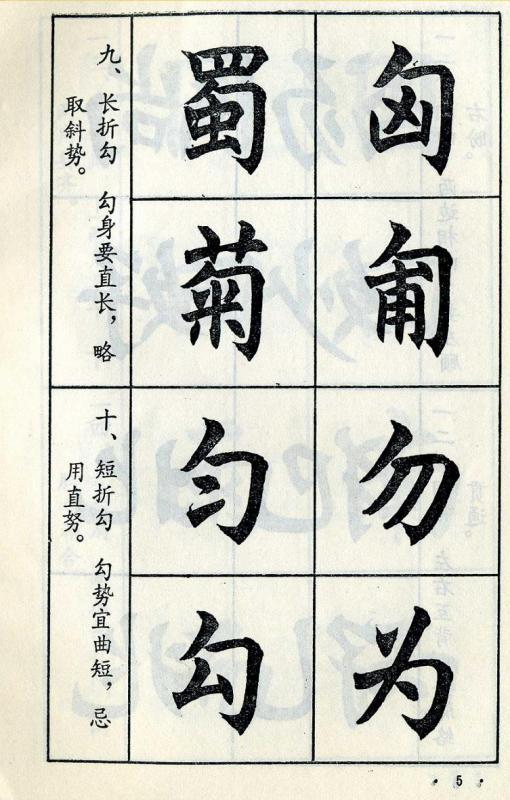 匈
匍
蜀
菊
九、长折勾　勾身要直长，略
取斜势。
勿
为
匀
勾
十、短折勾　勾势宜曲短，忌
用直努。
· 5 ·